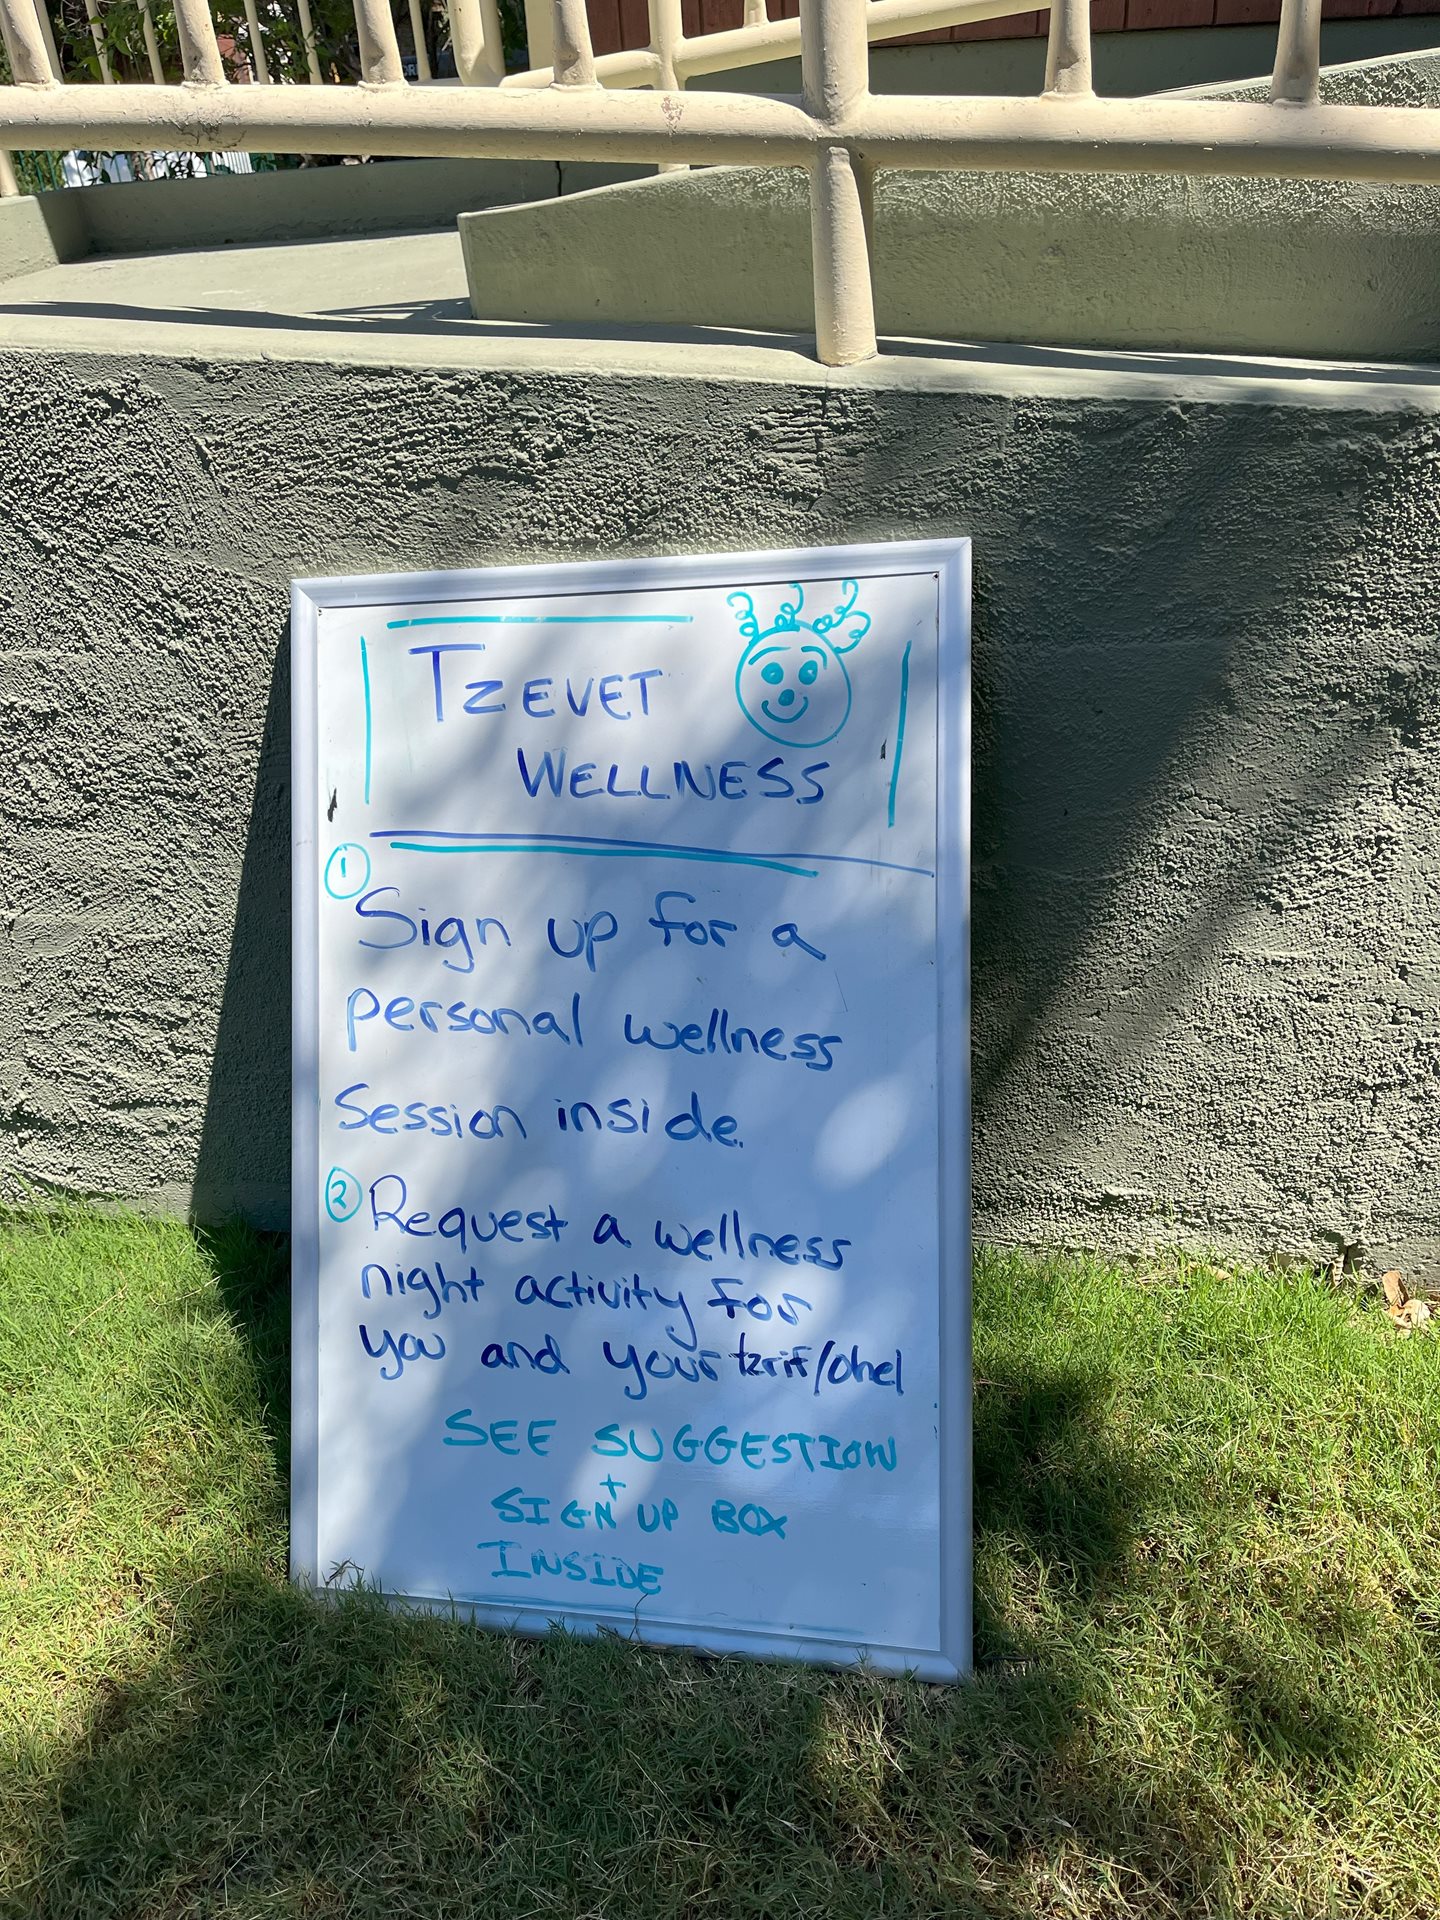 TZEVET
WELLNESS
1
Sign up for a
personal wellness
Session inside.
2 Request a wellness
night activity for
you and your tzrif/ohel
SEE SUGGESTION
+
SIGN UP BOX
INSIDE